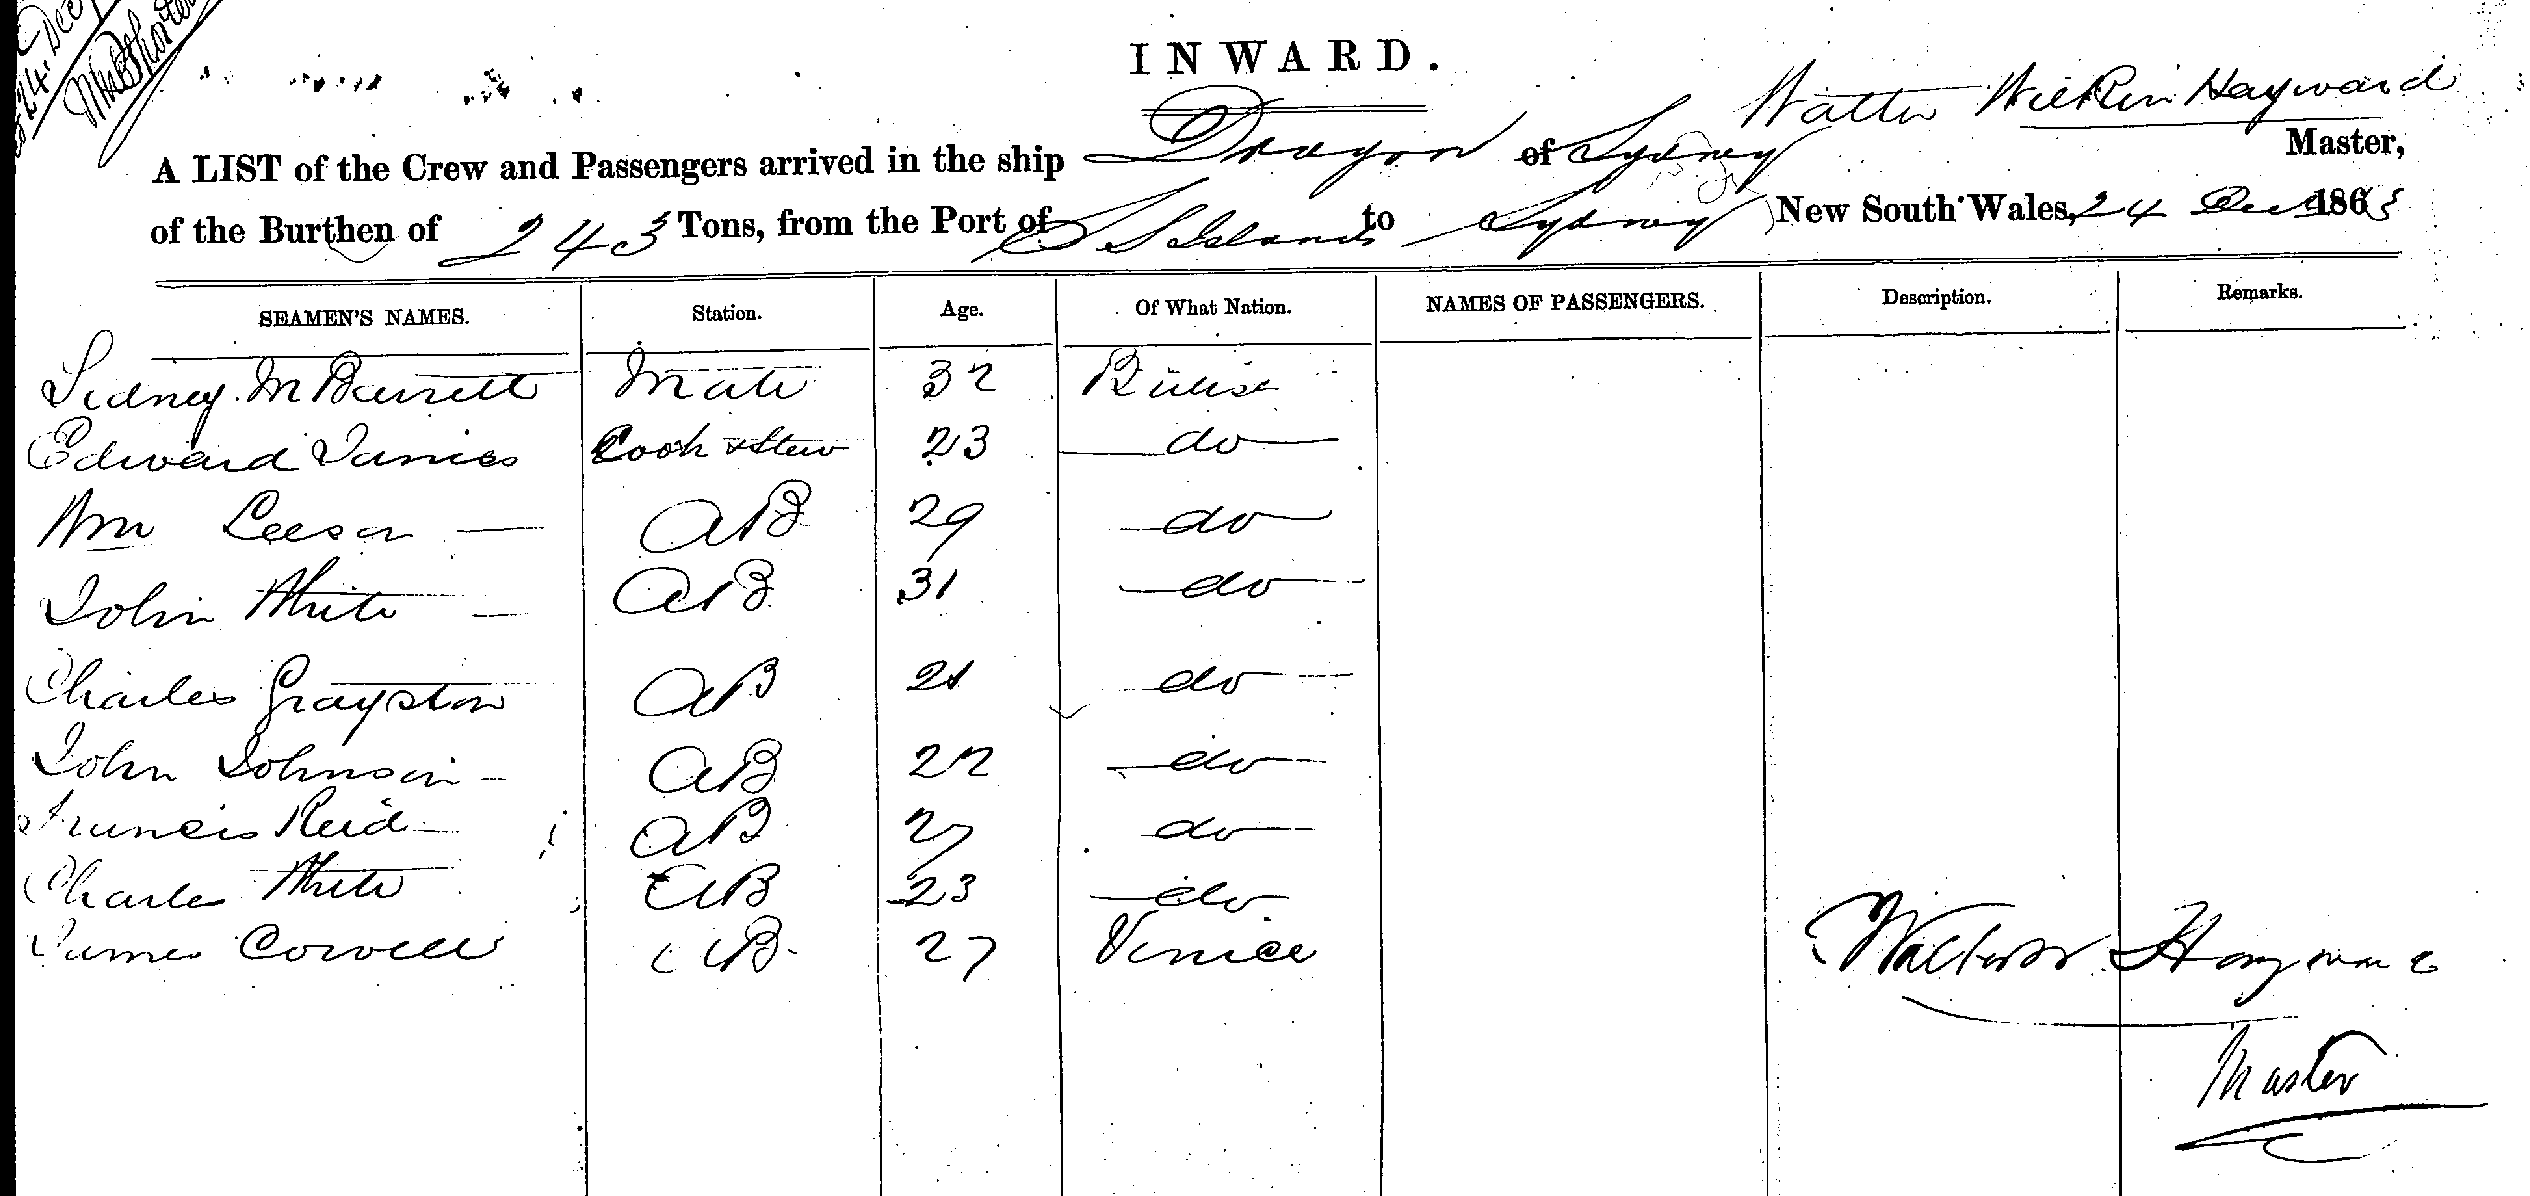 24 Dec
INWARD.
Walter Wilkin Hayward
A LIST of the Crew and Passengers arrived in the ship Dragon of Sydney Master,
of the Burthen of 243 Tons, from the Port of S S Islands to Sydney New South Wales, 24 Dec 1863
SEAMEN'S NAMES. Station. Age. Of What Nation. NAMES OF PASSENGERS. Description. Remarks.
Sidney M Barrett Mate 32 British
Edward James Cook & Stew 23 do
Wm Leeson AB 29 do
John White AB 31 do
Charles Grayston AB 21 do
John Johnson AB 22 do
Francis Reid AB 27 do
Charles White AB 23 do
James Corvell AB 27 Venice
Walter W Hayward
Master